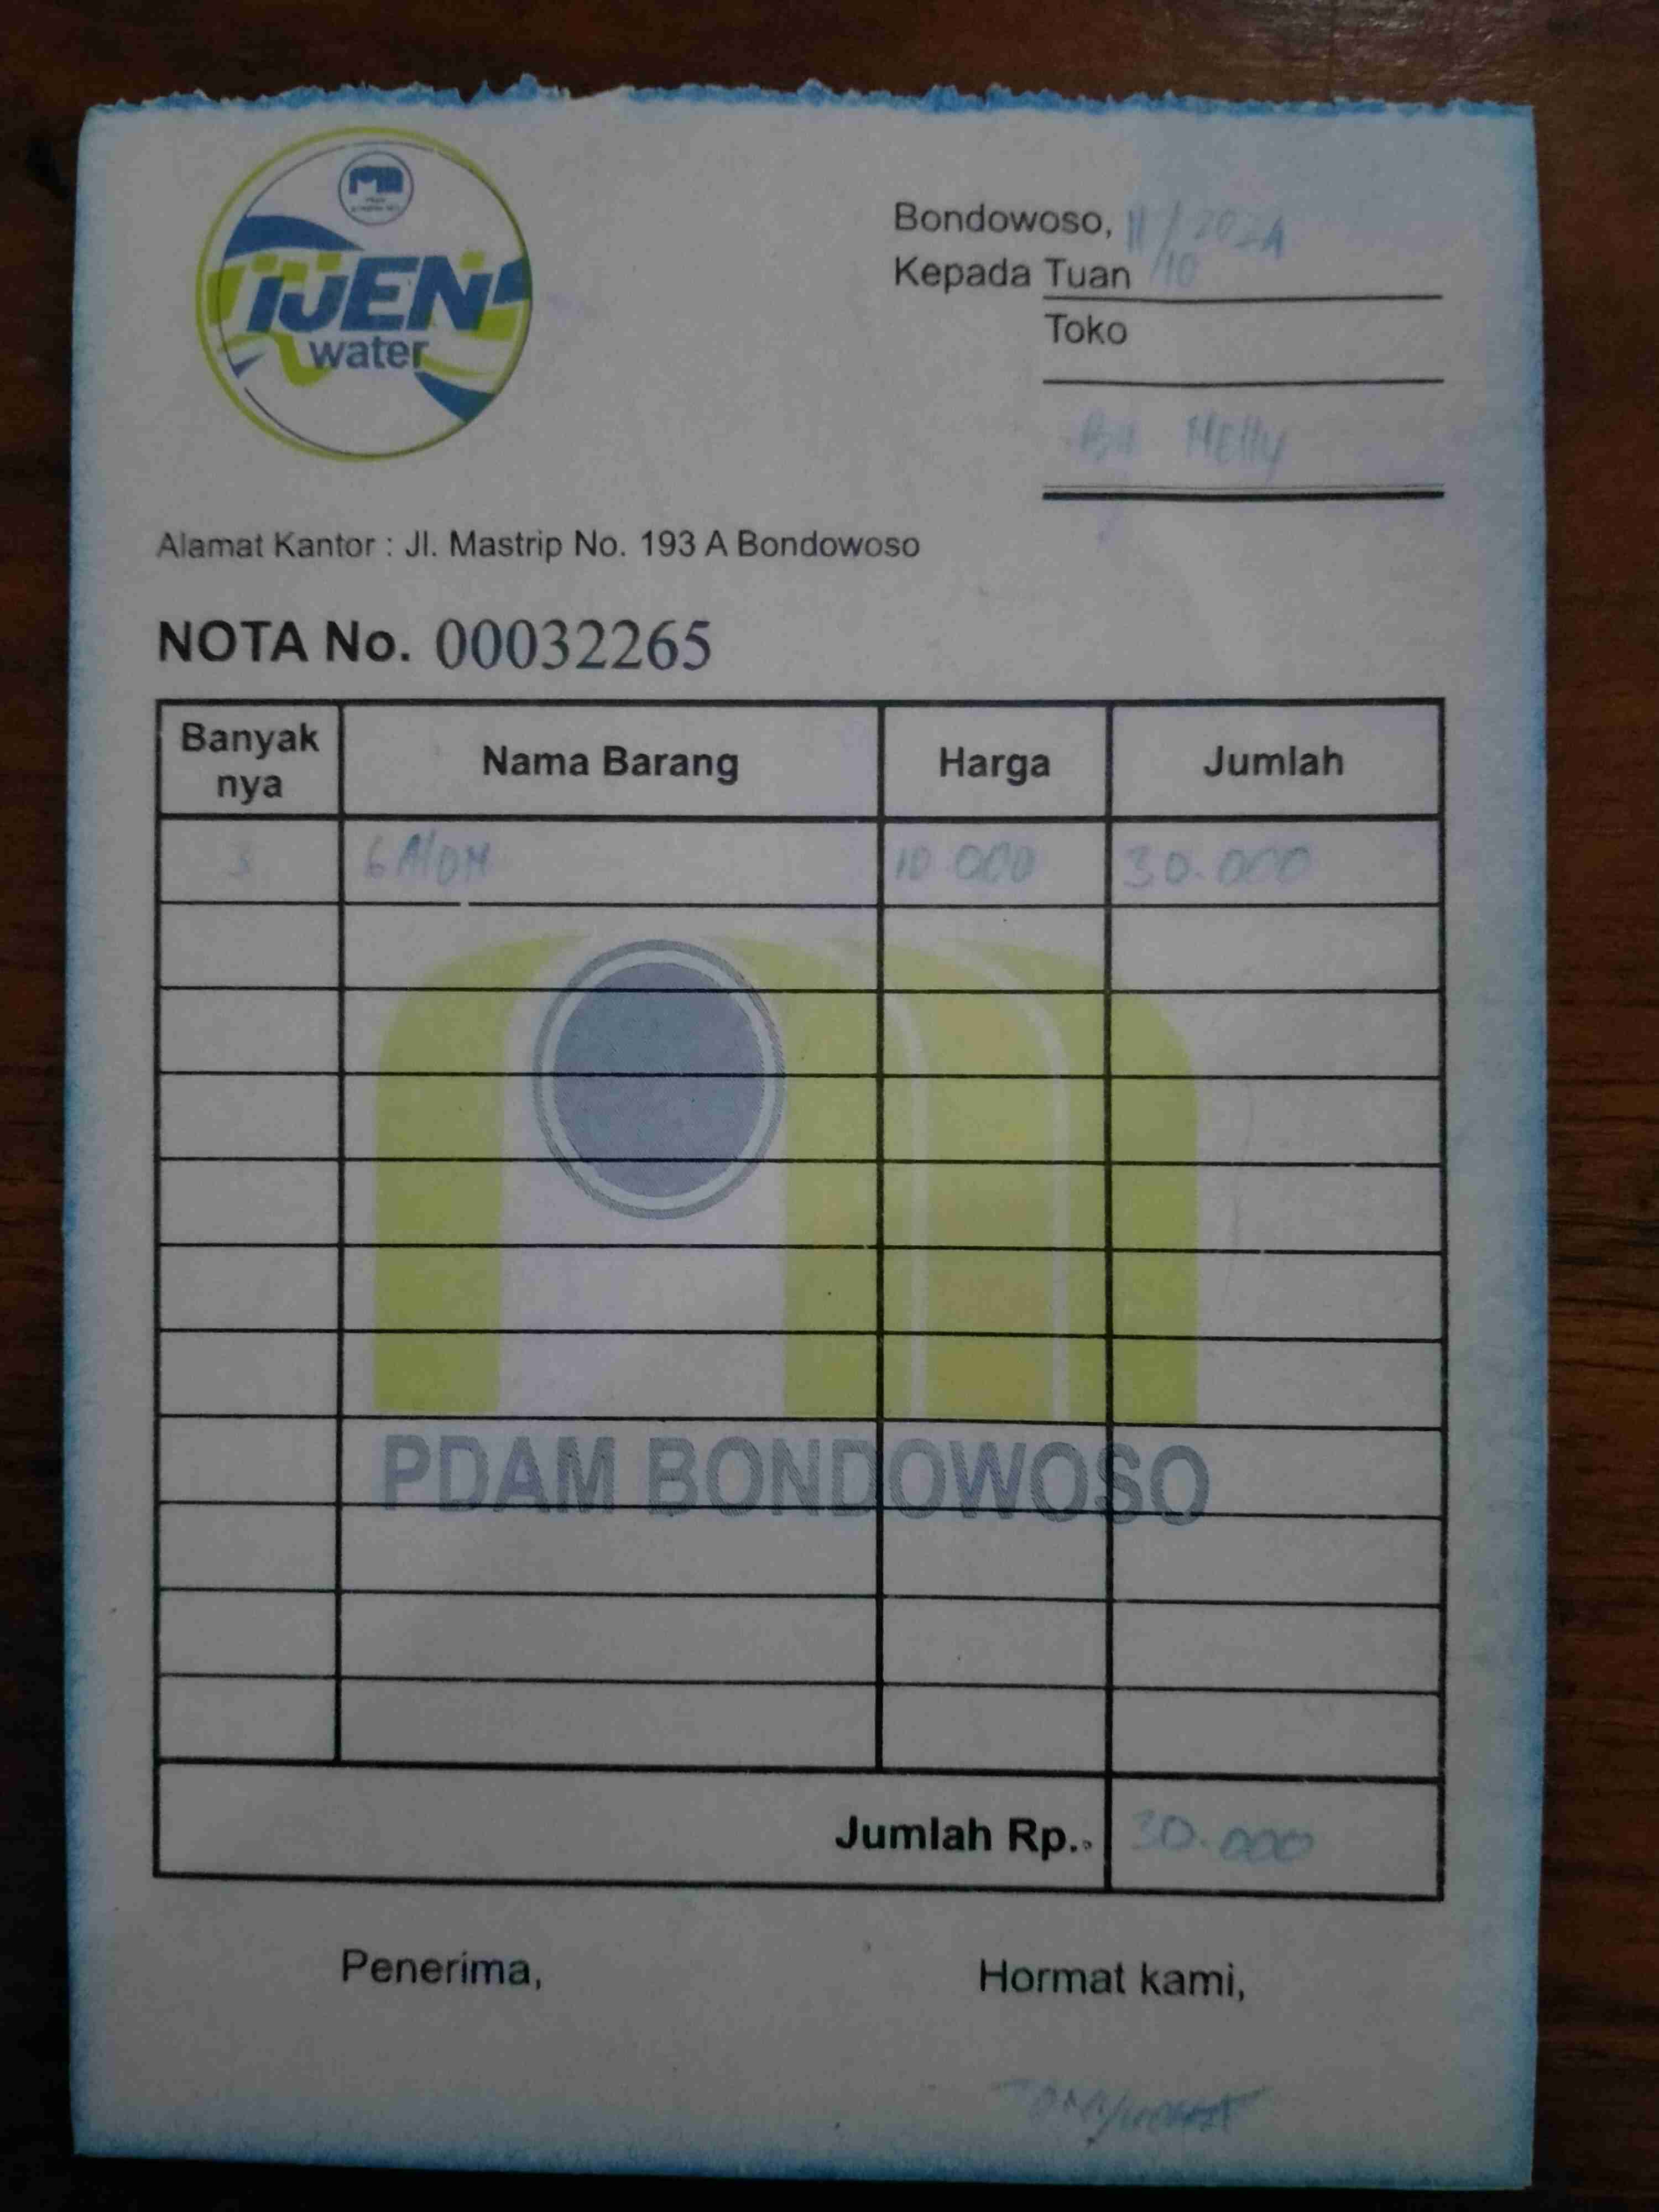 iJEN
water
Bondowoso, 11/10 2024
Kepada Tuan
Toko
Bu Nelly
Alamat Kantor : Jl. Mastrip No. 193 A Bondowoso
NOTA No. 00032265
Banyak nya Nama Barang Harga Jumlah
3 GAlON 10.000 30.000
PDAM BONDOWOSO
Jumlah Rp. 30.000
Penerima, Hormat kami,